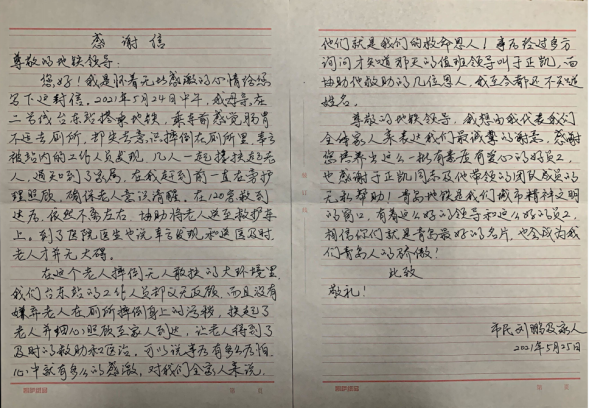 感谢信
尊敬的地铁领导:
您好!我是怀着无比感激的心情给您
写下这封信。2021年5月24日中午,我母亲在
二号线台东站搭乘地铁,乘车前感觉肠胃
不适去厕所,却失去意识摔倒在厕所里,幸亏
被站内的工作人员发现,几人一起搀扶起老
人,通知到了家属,在我赶到前一直在旁护
理照顾,确保老人意识清醒,在120急救到
达后,依然不离左右,协助将老人送至救护车
上。到了医院医生也说幸亏发现和送医及时,
老人才并无大碍。
在这个老人摔倒无人敢扶的大环境里,
我们台东站的工作人员却义无反顾,而且没有
嫌弃老人在厕所摔倒身上的污秽,扶起了
老人并细心照顾至家人到达,让老人得到了
及时的救助和医治。可以说事后有多么后怕,
心中就有多么的感激,对我们全家人来说,
他们就是我们的救命恩人!事后经过多方
询问才知道那天的值班领导叫于正凯,而
协助他救助的几位恩人,我至今都还不知道
姓名。
尊敬的地铁领导,我想由我代表我们
全体家人来表达我们最诚挚的谢意,感谢
您培养出这么一批有素质有爱心的好员工,
也感谢于正凯同志及他带领的团队成员的
无私帮助!青岛地铁是我们城市精神文明
的窗口,有着这么好的领导和这么好的员工,
相信你们就是青岛最好的名片,也会成为我
们青岛人的骄傲!
此致
敬礼!
市民刘鹏及家人
2021年5月25日